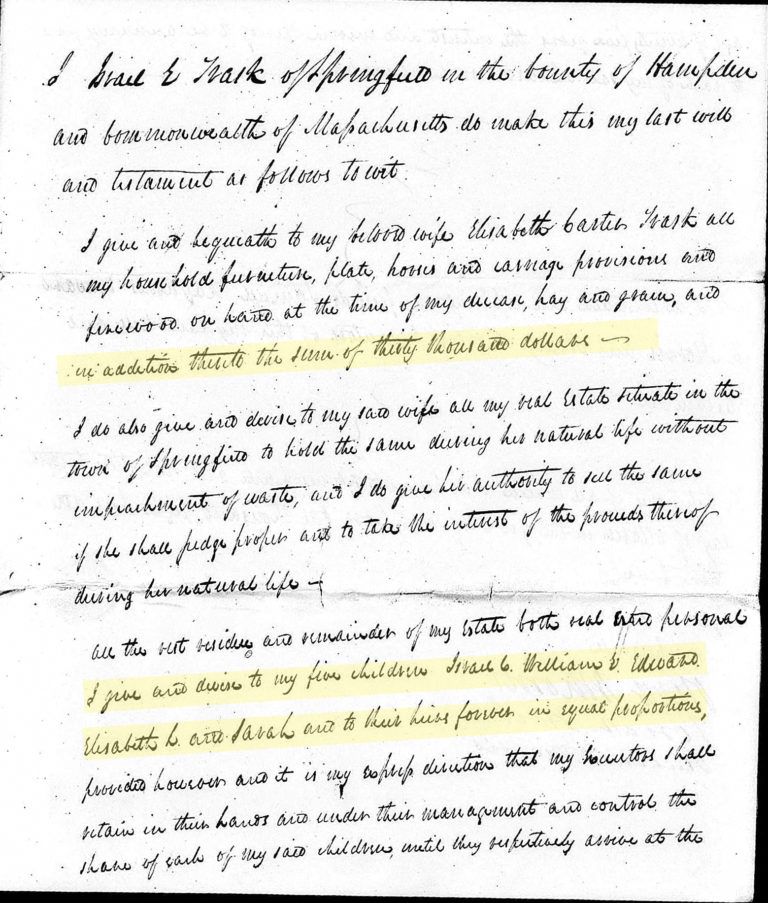 I Israel E Trask of Springfield in the County of Hampden
and Commonwealth of Massachusetts do make this my last will
and testament as follows to wit
I give and bequeath to my beloved wife Elisabeth Carter Trask all
my household furniture, plate, horses and carriage provisions and
firewood on hand at the time of my decease, hay and grain, and
in addition thereto the sum of thirty thousand dollars —
I do also give and devise to my said wife all my real Estate situate in the
town of Springfield to hold the same during her natural life without
impeachment of waste, and I do give her authority to sell the same
if she shall judge proper and to take the interest of the proceeds thereof
during her natural life —
all the rest residue and remainder of my Estate both real and personal
I give and devise to my five children Israel C. William E. Edward.
Elisabeth L. and Sarah and to their heirs forever in equal proportions,
provided however and it is my express direction that my Executors shall
retain in their hands and under their management and control the
share of each of my said children, until they respectively arrive at the